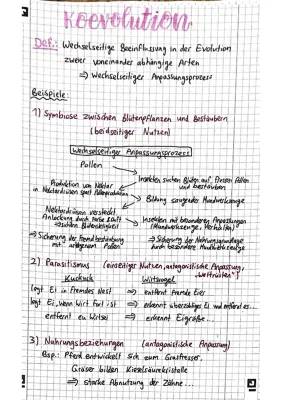 Koevolution
Def.: Wechselseitige Beeinflussung in der Evolution
zweier voneinander abhängige Arten
⇒ Wechselseitiger Anpassungsprozess
Beispiele:
1) Symbiose zwischen Blütenpflanzen und Bestäubern
(beidseitiger Nutzen)
Wechselseitiger Anpassungsprozess
Pollen
Insekten suchen Blüten auf, fressen Pollen
und bestäuben
Produktion von Nektar
in Nektardrüsen spart Pollenproduktion
Bildung saugender Mundwerkzeuge
Nektardrüsen versteckt
Anlockung durch tolle Duft
Insekten mit besonderen Anpassungen
(Mundwerkzeuge, Verhalten)
⇒ Sicherung der Fremdbestäubung
mit arteigenem Pollen
⇒ Sicherung der Nahrungsgrundlage
durch besondere Mundwerkzeuge
2) Parasitismus (einseitiger Nutzen, antagonistische Anpassung,
"Wettrüsten")
Kuckuck Wirtsvogel
legt Ei in fremdes Nest ⇒ entfernt fremde Eier
legt Ei, wenn Wirt fort ist ⇒ erkennt überzähliges Ei und entfernt es..
entfernt ein Wirtsei ⇒ erkennt Eigröße...
3) Nahrungsbeziehungen (antagonistische Anpassung)
Bsp.: Pferd entwickelt sich zum Grasfresser,
Gräser bilden Kieselsäurekristalle
⇒ starke Abnutzung der Zähne...